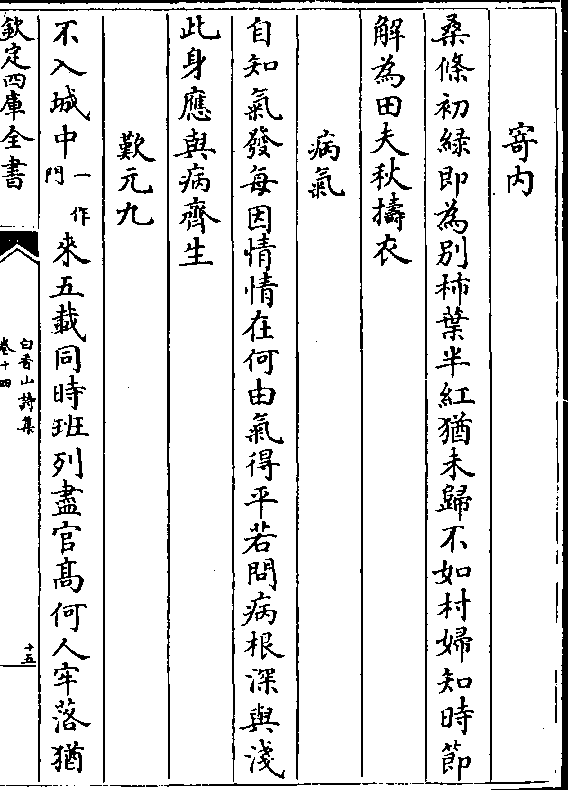 寄内
桑條初緑即為别柿葉半紅猶未歸不如村婦知時節
解為田夫秋擣衣
病氣
自知氣發每因情情在何由氣得平若問病根深與淺
此身應與病齊生
歎元九
不入城中一作門來五載同時班列盡官髙何人牢落猶
欽定四庫全書
白香山詩集
卷十四
十五